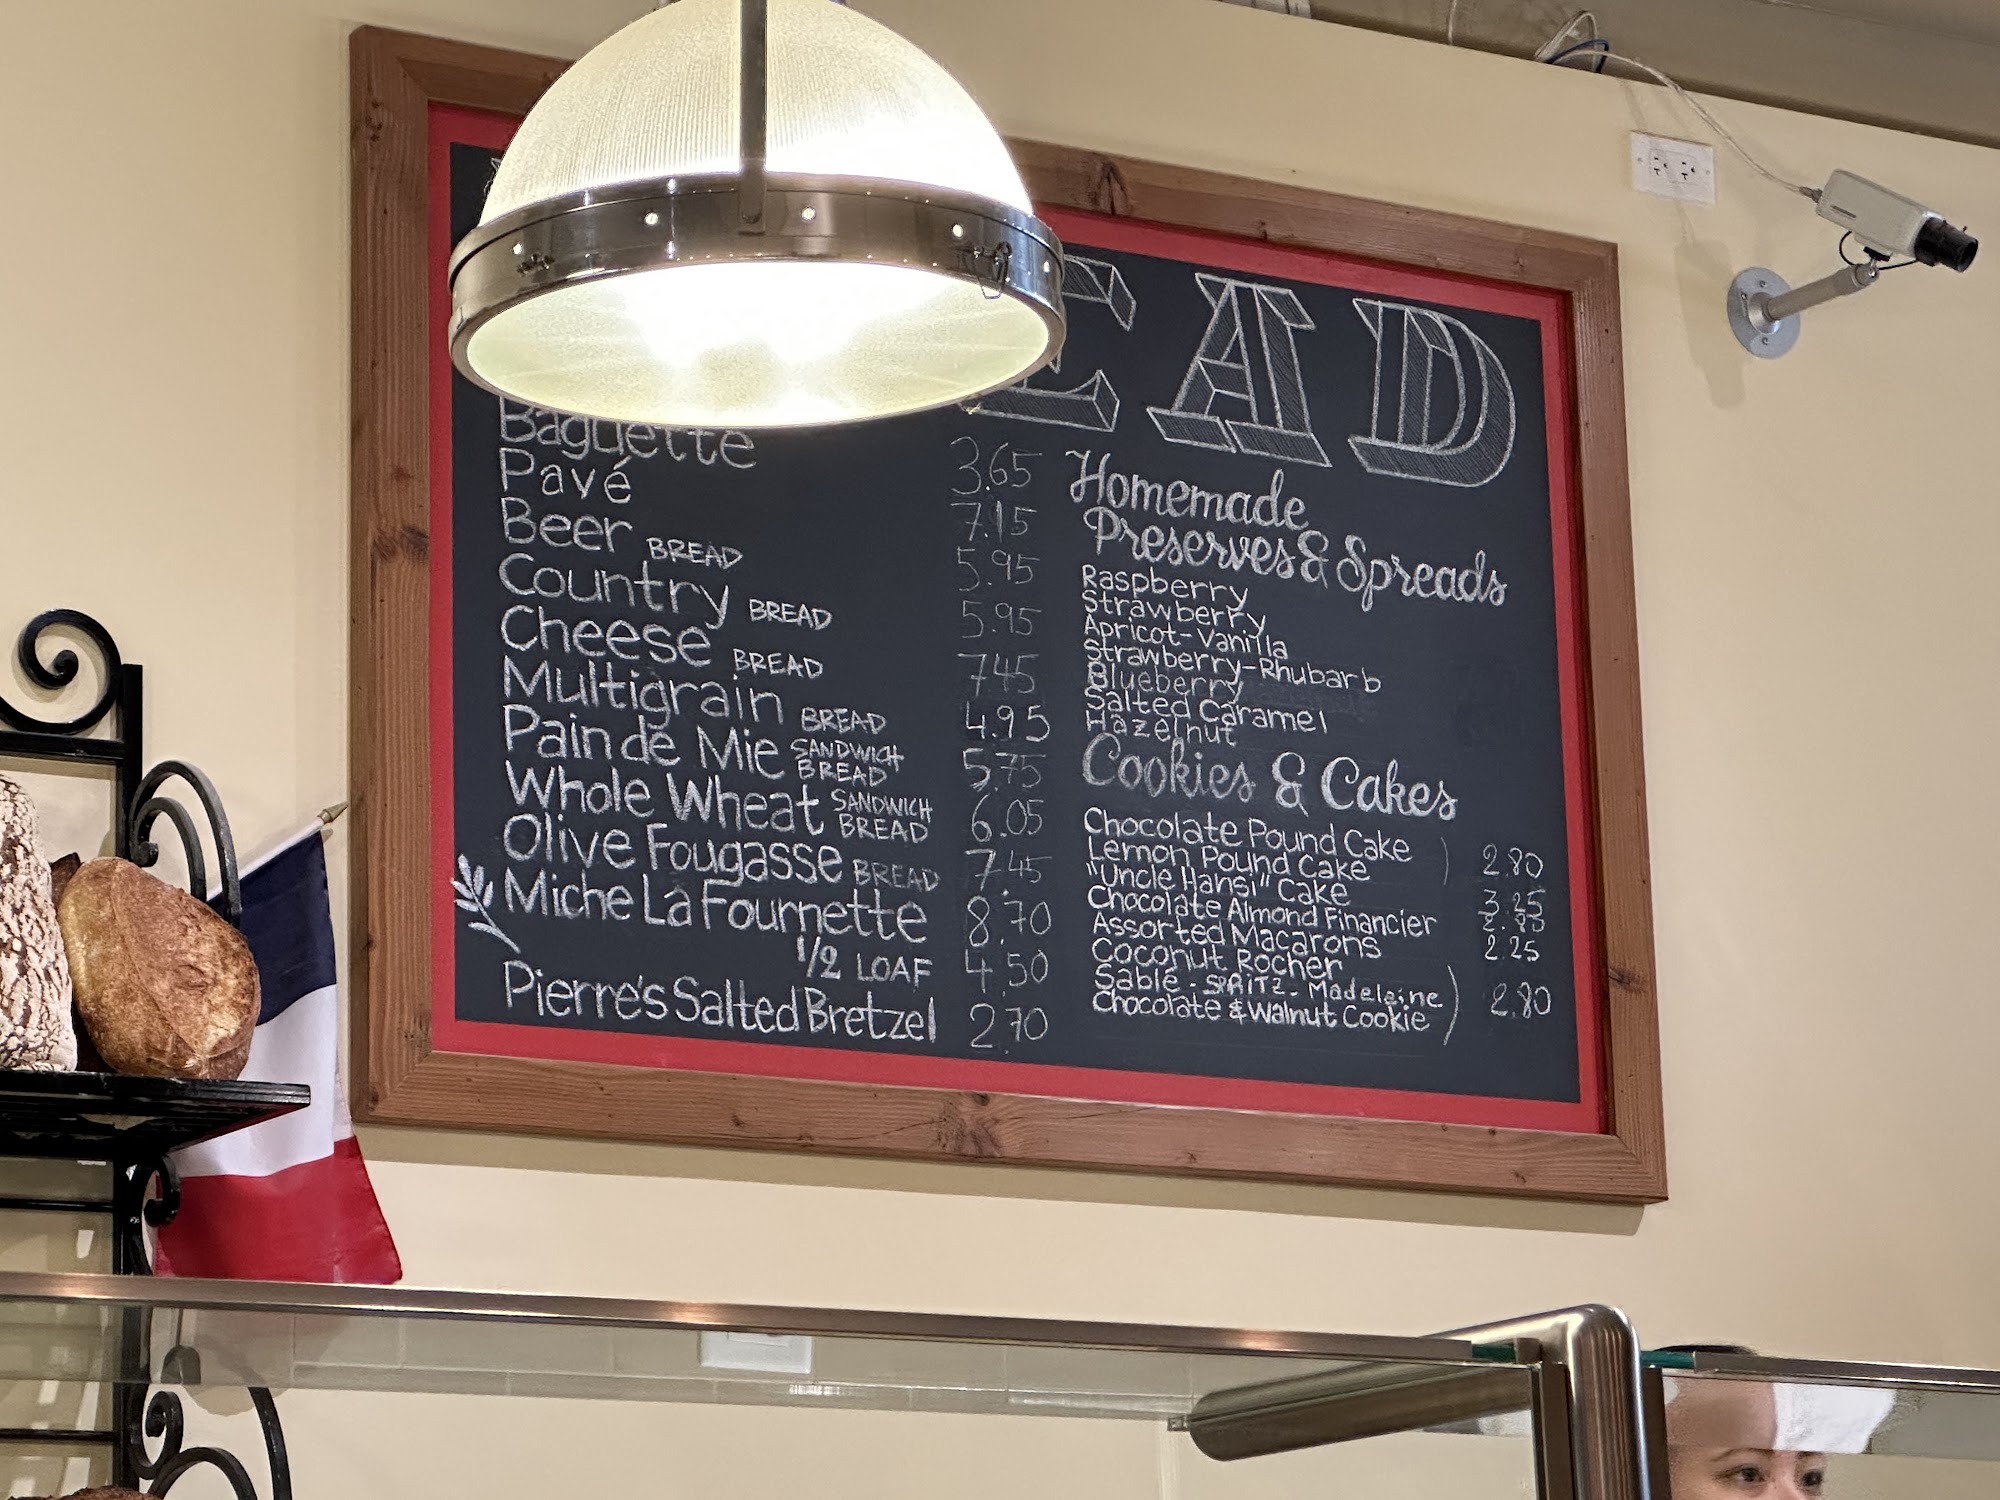 EAD
Baguette 3.65
Pavé 7.15
Beer BREAD 5.95
Country BREAD 5.95
Cheese BREAD 7.45
Multigrain BREAD 4.95
Pain de Mie SANDWICH BREAD 5.75
Whole Wheat SANDWICH BREAD 6.05
Olive Fougasse BREAD 7.45
Miche La Fournette 8.70
1/2 LOAF 4.50
Pierre's Salted Bretzel 2.70
Homemade
Preserves & Spreads
Raspberry
Strawberry
Apricot-Vanilla
Strawberry-Rhubarb
Blueberry
Salted Caramel
Hazelnut
Cookies & Cakes
Chocolate Pound Cake
Lemon Pound Cake 2.80
"Uncle Hansi" Cake 3.25
Chocolate Almond Financier
Assorted Macarons 2.25
Coconut Rocher
Sablé - SPRiTZ - Madeleine 2.80
Chocolate & Walnut Cookie